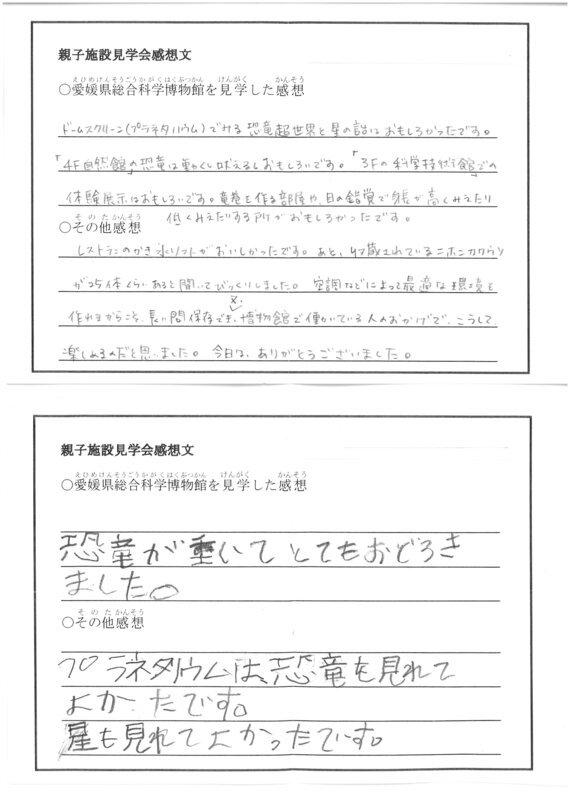 親子施設見学会感想文
えひめけんそうごうかがくはくぶつかん けんがく かんそう
○愛媛県総合科学博物館を見学した感想
ドームスクリーン(プラネタリウム)でみる恐竜超世界と星の話はおもしろかったです。
「4F自然館」の恐竜は動くし吠えるしおもしろいです。「3Fの科学技術館」での
体験展示はおもしろいです。竜巻を作る部屋や、目の錯覚で身長が高くみえたり
低くみえたりする所がおもしろかったです。
そのたかんそう
○その他感想
レストランのかき氷ソフトがおいしかったです。あと、貯蔵されているニホンカワウソ
が25体くらいあると聞いてびっくりしました。空調などによって最適な環境を
作れるからこそ、長い間保存でき、博物館で働いている人のおかげで、こうして
楽しめるのだと思いました。今日は、ありがとうございました。
親子施設見学会感想文
えひめけんそうごうかがくはくぶつかん けんがく かんそう
○愛媛県総合科学博物館を見学した感想
恐竜が動いてとてもおどろき
ました。
そのたかんそう
○その他感想
プラネタリウムは、恐竜を見れて
よかったです。
星も見れてよかったです。